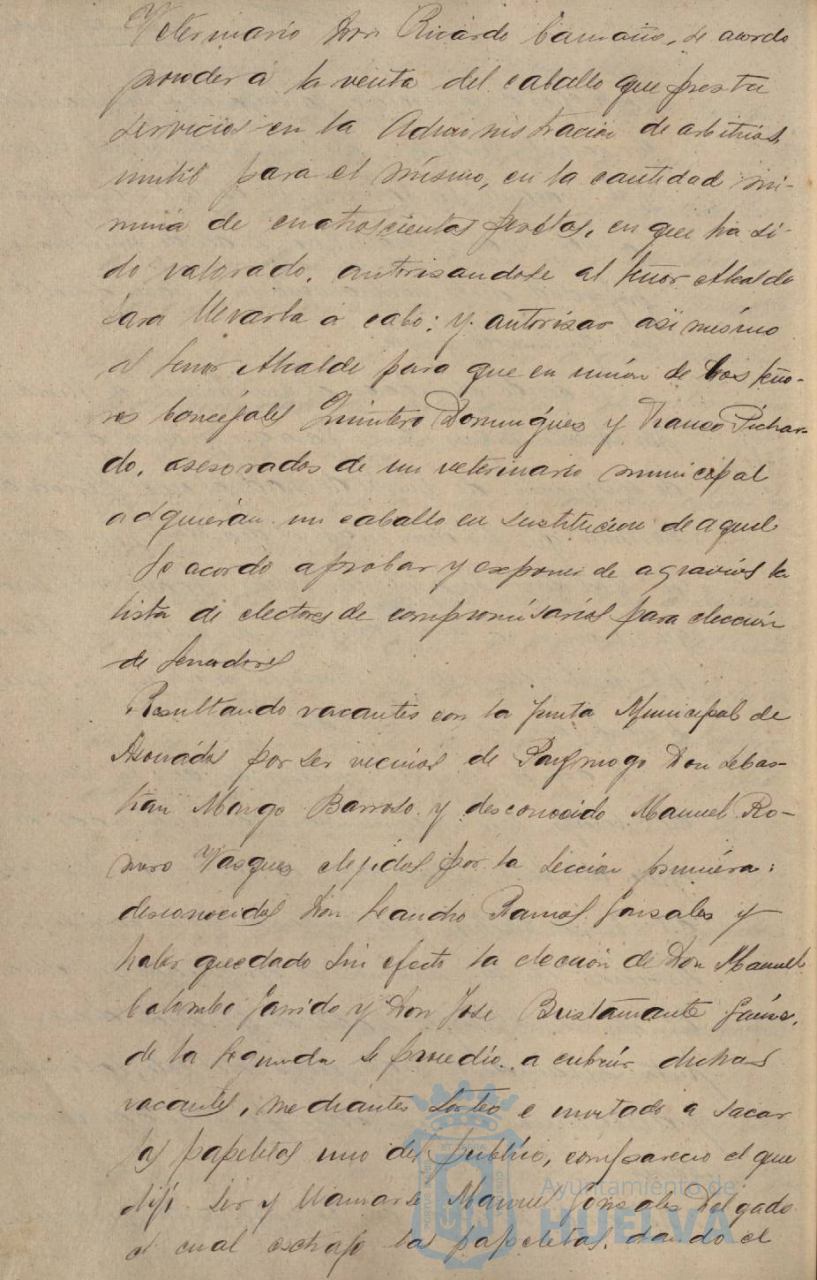 Veterinario Don Ricardo Camaño, se acordo
proceder á la venta del caballo que presta
servicios en la Administracion de arbitrios,
inutil para el mismo, en la cantidad mi-
nima de cuatroscientas pesetas, en que ha si-
do valorado, autorisandose al señor Alcalde
para llevarla a cabo; y autorisar asi mismo
al señor Alcalde para que en unión de los seño-
res Concejales Quintero Domingues y Franco Pichar-
do, asesorados de un veterinario municipal
adquieran un caballo en sustitucion de aquel
Se acordo aprobar y exponer de agravios la
lista de electores de compromisarios para elección
de Senadores
Resultando vacantes en la Junta Municipal de
Asociados por ser vecinos de Paymogo Don Sebas-
tian Barroso y desconocido Manuel Ro-
mero Vasques elejidos por la sección primera;
desconocidos Don Leandro Ramos Gonsales y
haber quedado sin efecto la elección de Don Manuel
Colombo Garrido y Don Jose Bustamante
de la segunda se procedio a cubrir dichas
vacantes, mediantes sorteo e invitado a sacar
las papeletas uno del publico, comparecio el que
dijo ser y llamarse Manuel Gonsales Delgado
el cual las papeletas, dando el
Ayuntamiento de
HUELVA